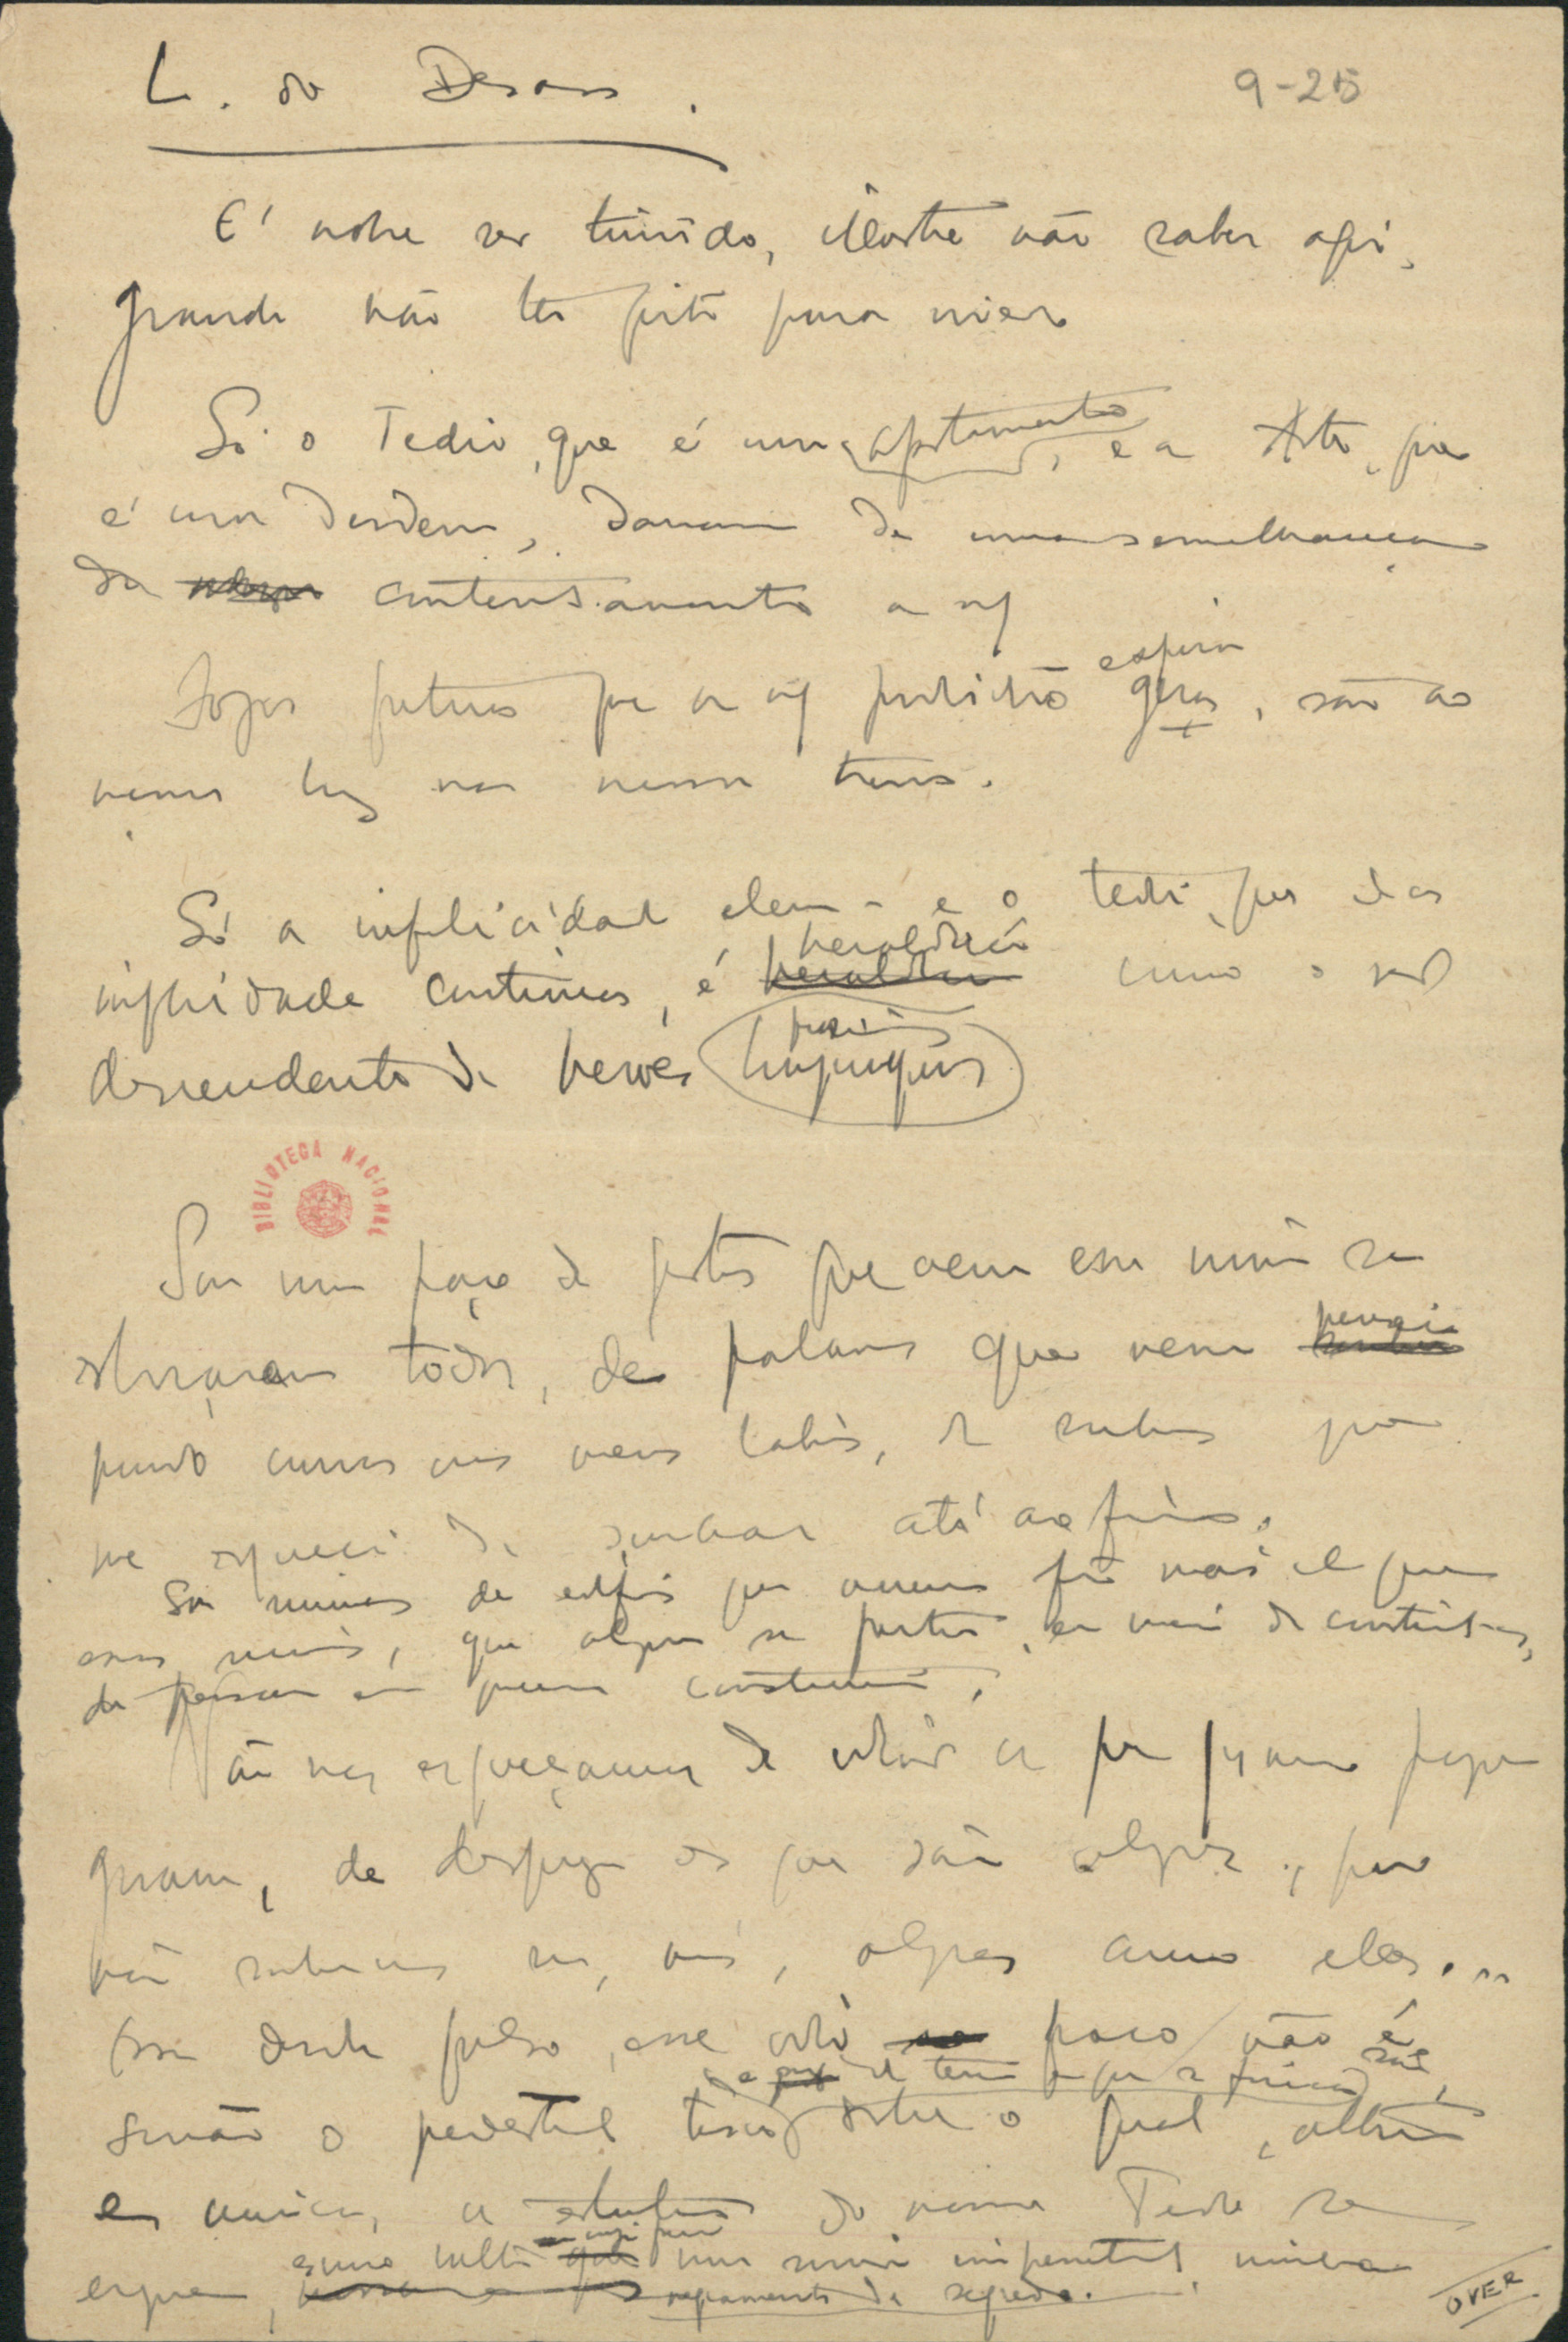 L. do Desass.
9-25
E' nobre ser timido, illustre não saber agir,
grande não ter geito para viver.
Só o Tedio, que é um afastamento, e a Arte, que
é um desdem, douram de uma semelhança
de contentamento a
Fogos fatuos que a podridão gera, são ao
espera
menos luz nas nossas trevas.
Só a infelicidade eleva - e o tedio, que das
heraldico
infelicidades como o ser
descendente de heroes longinquos
BIBLIOTECA NACIONAL
Sou um poço de gestos que nem em mim se
esboçaram todos, de palavras que nem pensei
pondo curvas nos meus labios, de sonhos que
me esqueci de sonhar até ao fim.
Sou ruinas de edificios que nunca foram mais do que
essas ruinas, que alguem se fartou, em meio de construil-as,
de pensar em quem construia.
Não nos esqueçamos de odiar os que gosam porque
gosam, de desprezar os que são alegres, porque
não sabemos ser, nós, alegres como elles...
Esse desdem falso, esse odio fraco não é
senão o pedestal tosco sobre o qual, altiva
e unica, a estatua do nosso Tedio se
escuro vulto um sorriso impenetravel
ergue, vagamente de segredo.
OVER